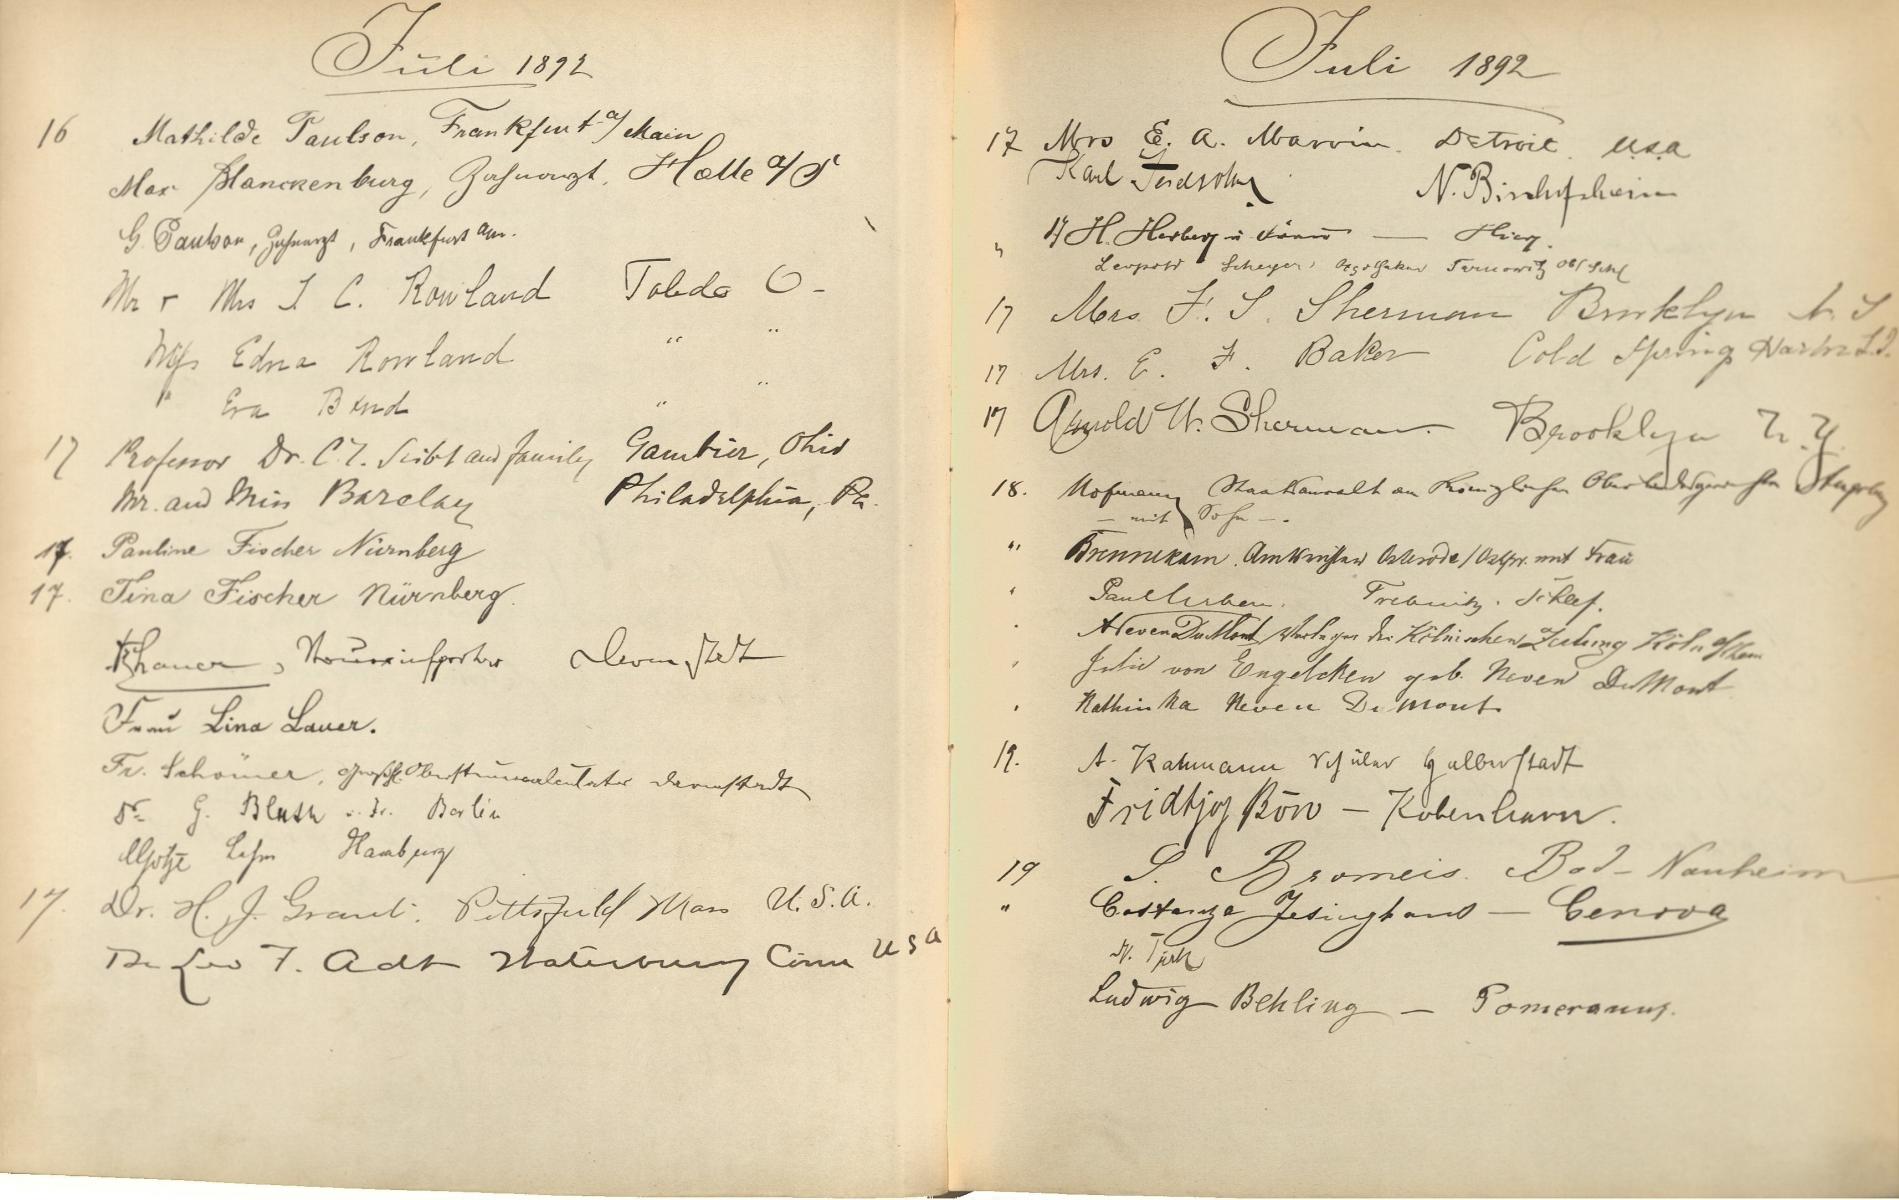 Juli 1892
16 Mathilde Paulson, Frankfurt a/Main
Max Blanckenburg, Zahnarzt, Halle a/S
G. Paulson, Zahnarzt, Frankfurt a/m.
Mr & Mrs I C. Rowland Toledo O-
Miss Edna Rowland " "
" Eva Bond " "
17 Professor Dr. C. T. Seibt and family Gambier, Ohio
Mr. and Miss Barclay Philadelphia, Pa.
17. Pauline Fischer Nürnberg
17. Tina Fischer Nürnberg.
Darmstadt
Frau Lina Lauer.
Fr. Schömer, Darmstadt
Dr G. Bluth u. Fr. Berlin
Hamburg
17. Dr. H. J. Grant. Pittsfield Mass U.S.A.
Dr Leo F. Adt Waterbury Conn U S A
Juli 1892
17 Mrs E. A. Marvin. Detroit. U.S.A
Karl N. Bischofsheim
" 17 H. Herberg u Frau — Hier.
Leopold Scheyer, Apotheker Tarnowitz Ob/Schl
17 Mrs F. S. Sherman Brooklyn N. Y
17 Mrs. E. F. Baker Cold Spring Harbor L.I.
17 Arnold W. Sherman. Brooklyn N.Y.
18. Hofmann Staatsanwalt am Königlichen Oberlandesgerichte Augsburg
— mit Sohn —.
" Brennekam. Amtsrichter Osterode/Ostpr. mit Frau
" Paul Trebnitz. Schles.
" A Neven DuMont Verleger der Kölnischen Zeitung Köln a/Rhein
" Julie von Engelcken geb. Neven DuMont
" Kathinka Neven DuMont
19. A. Katmann Schüler Halberstadt
Fridtjof Bön — Kobenhavn.
19 S. Bromeis. Bad-Nauheim
" Costanza Jesinghaus — Genova
N. Türk
Ludwig Behling — Pomerania.